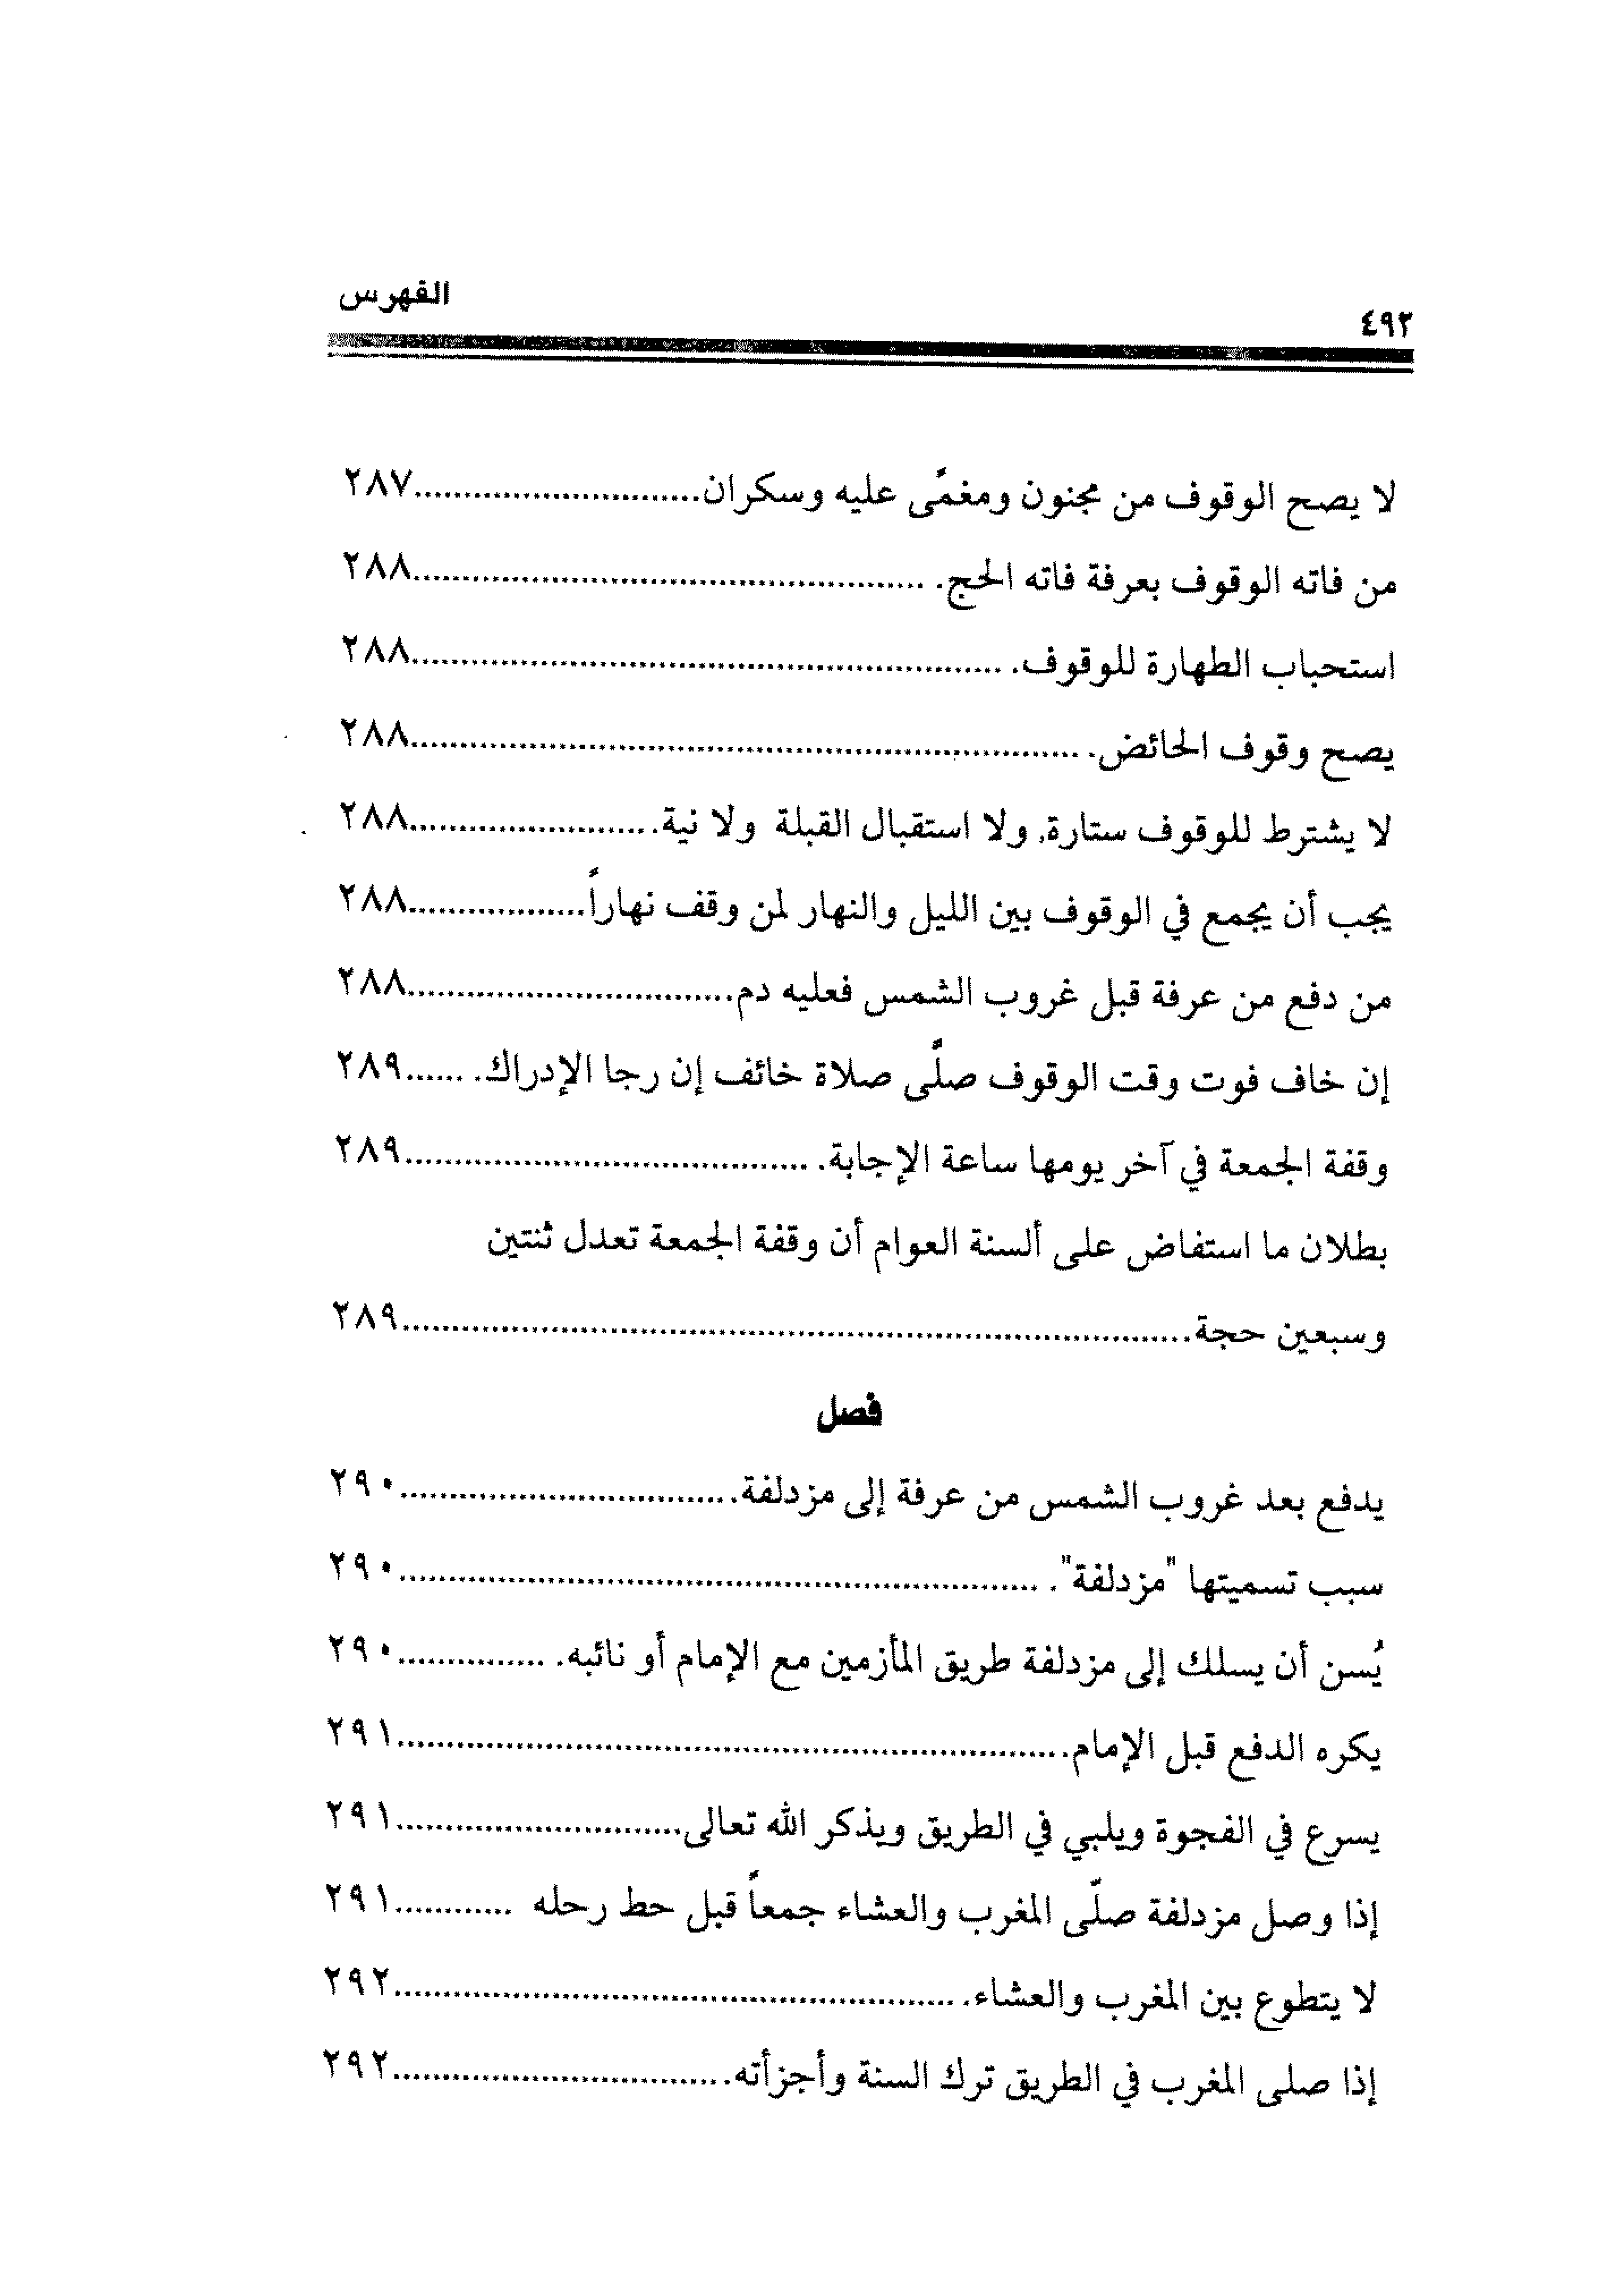 الفهرس
٤٩٢
لا يصح الوقوف من مجنون ومغمًى عليه وسكران............................٢٨٧
من فاته الوقوف بعرفة فاته الحج. ....................................................٢٨٨
استحباب الطهارة للوقوف. ............................................................٢٨٨
يصح وقوف الحائض. ....................................................................٢٨٨
لا يشترط للوقوف ستارة, ولا استقبال القبلة ولا نية.........................٢٨٨
يجب أن يجمع في الوقوف بين الليل والنهار لمن وقف نهاراً..................٢٨٨
من دفع من عرفة قبل غروب الشمس فعليه دم.................................٢٨٨
إن خاف فوت وقت الوقوف صلَّى صلاة خائف إن رجا الإدراك. ......٢٨٩
وقفة الجمعة في آخر يومها ساعة الإجابة. .........................................٢٨٩
بطلان ما استفاض على ألسنة العوام أن وقفة الجمعة تعدل ثنتين
وسبعين حجة................................................................................٢٨٩
فصل
يدفع بعد غروب الشمس من عرفة إلى مزدلفة..................................٢٩٠
سبب تسميتها "مزدلفة". .................................................................٢٩٠
يُسن أن يسلك إلى مزدلفة طريق المأزمين مع الإمام أو نائبه. ...............٢٩٠
يكره الدفع قبل الإمام.....................................................................٢٩١
يسرع في الفجوة ويلبي في الطريق ويذكر الله تعالى.............................٢٩١
إذا وصل مزدلفة صلَّى المغرب والعشاء جمعاً قبل حط رحله ............٢٩١
لا يتطوع بين المغرب والعشاء. .........................................................٢٩٢
إذا صلى المغرب في الطريق ترك السنة وأجزأته..................................٢٩٢